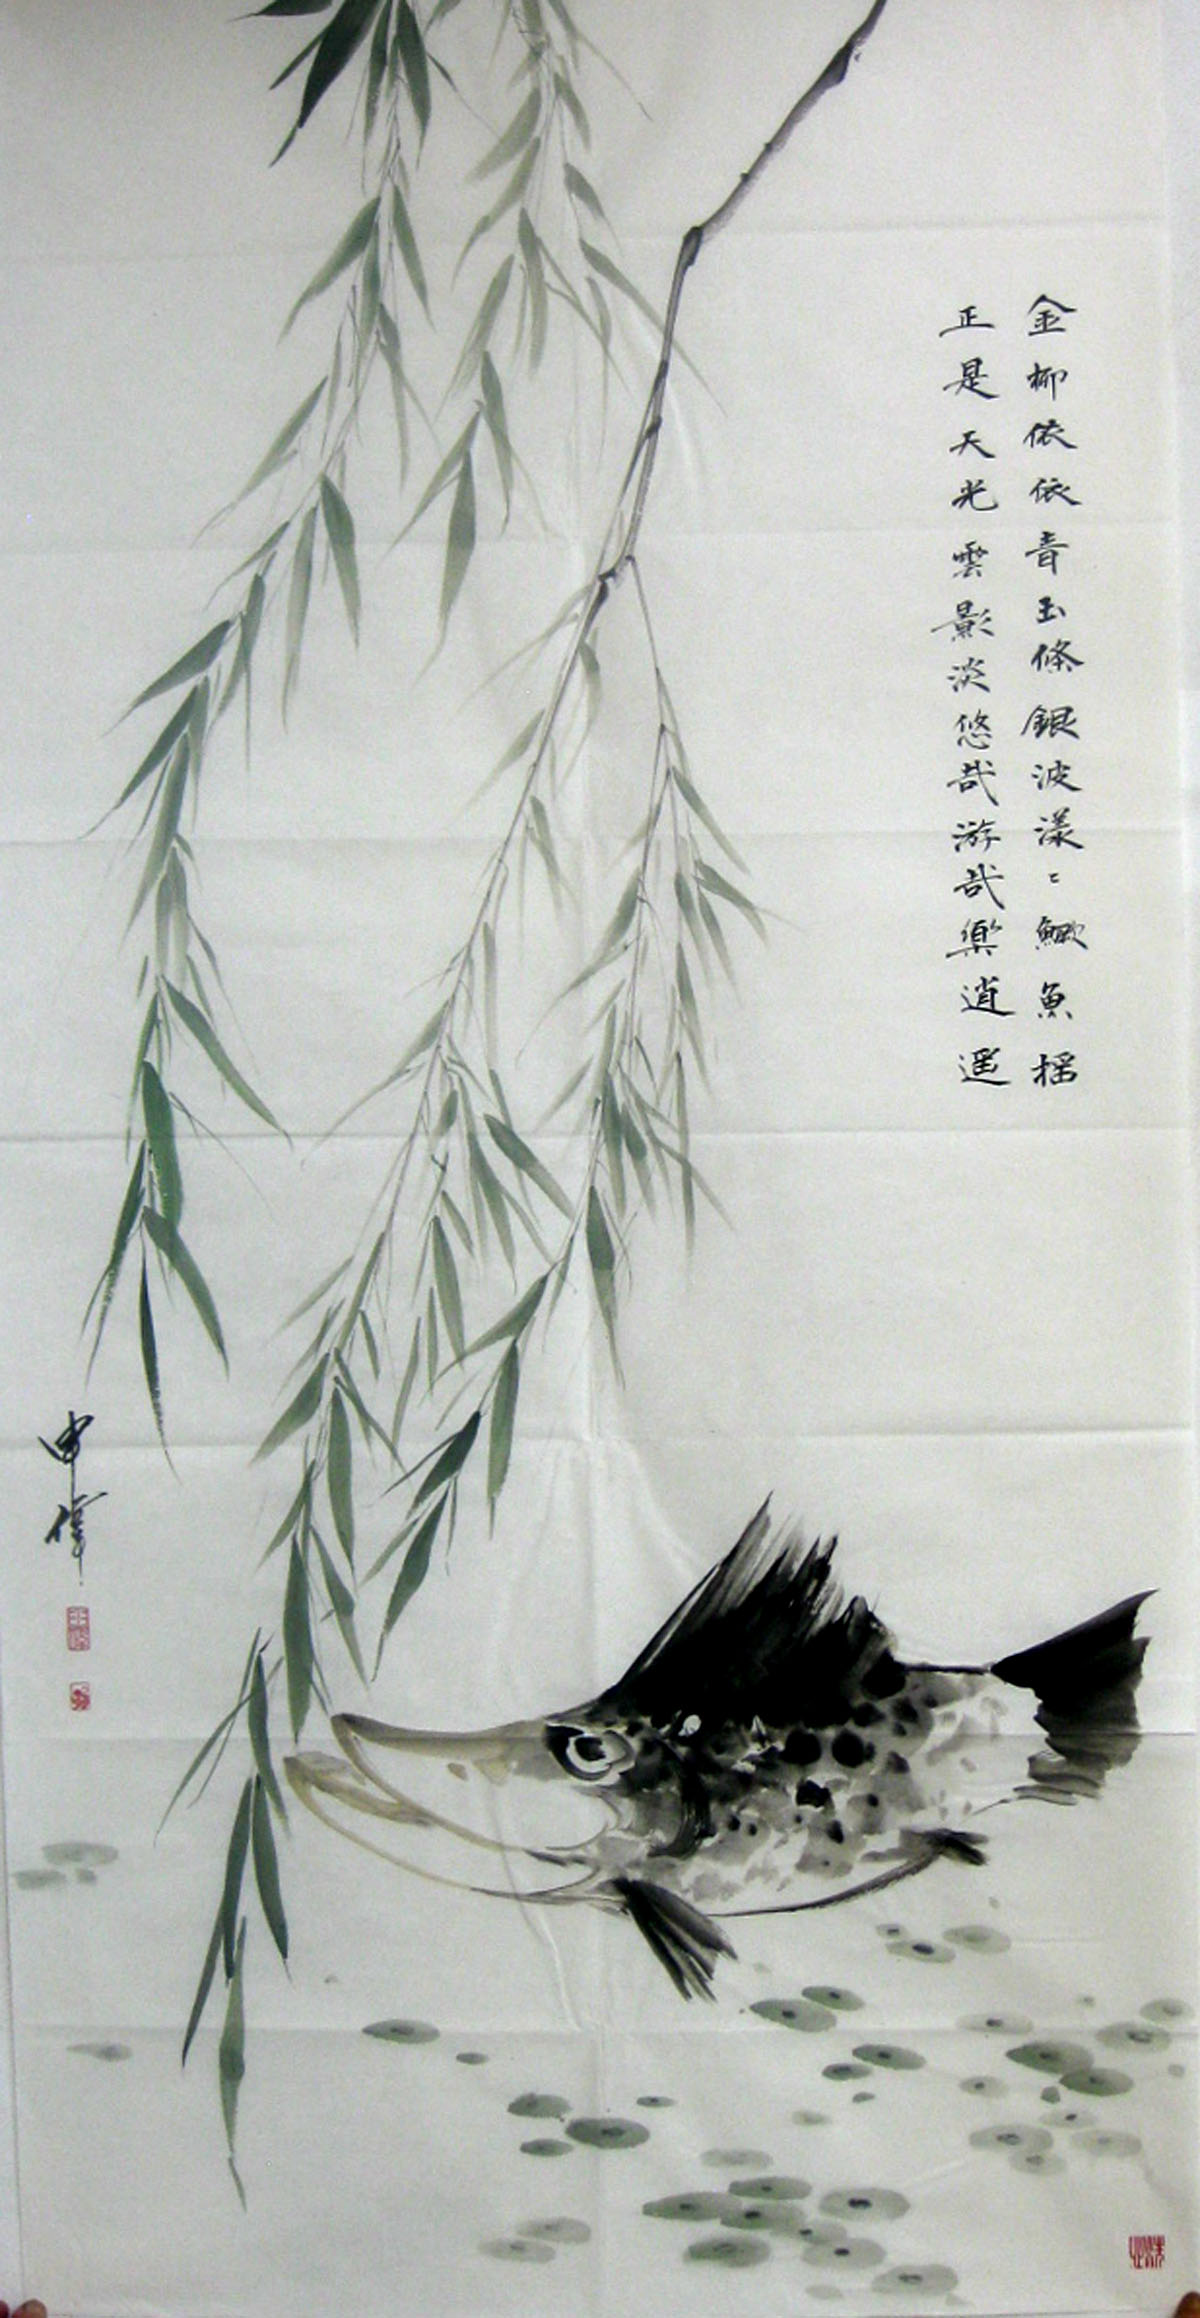 金柳依依青玉條銀波漾〻鱖魚摇
正是天光雲影淡悠哉游哉樂逍遥